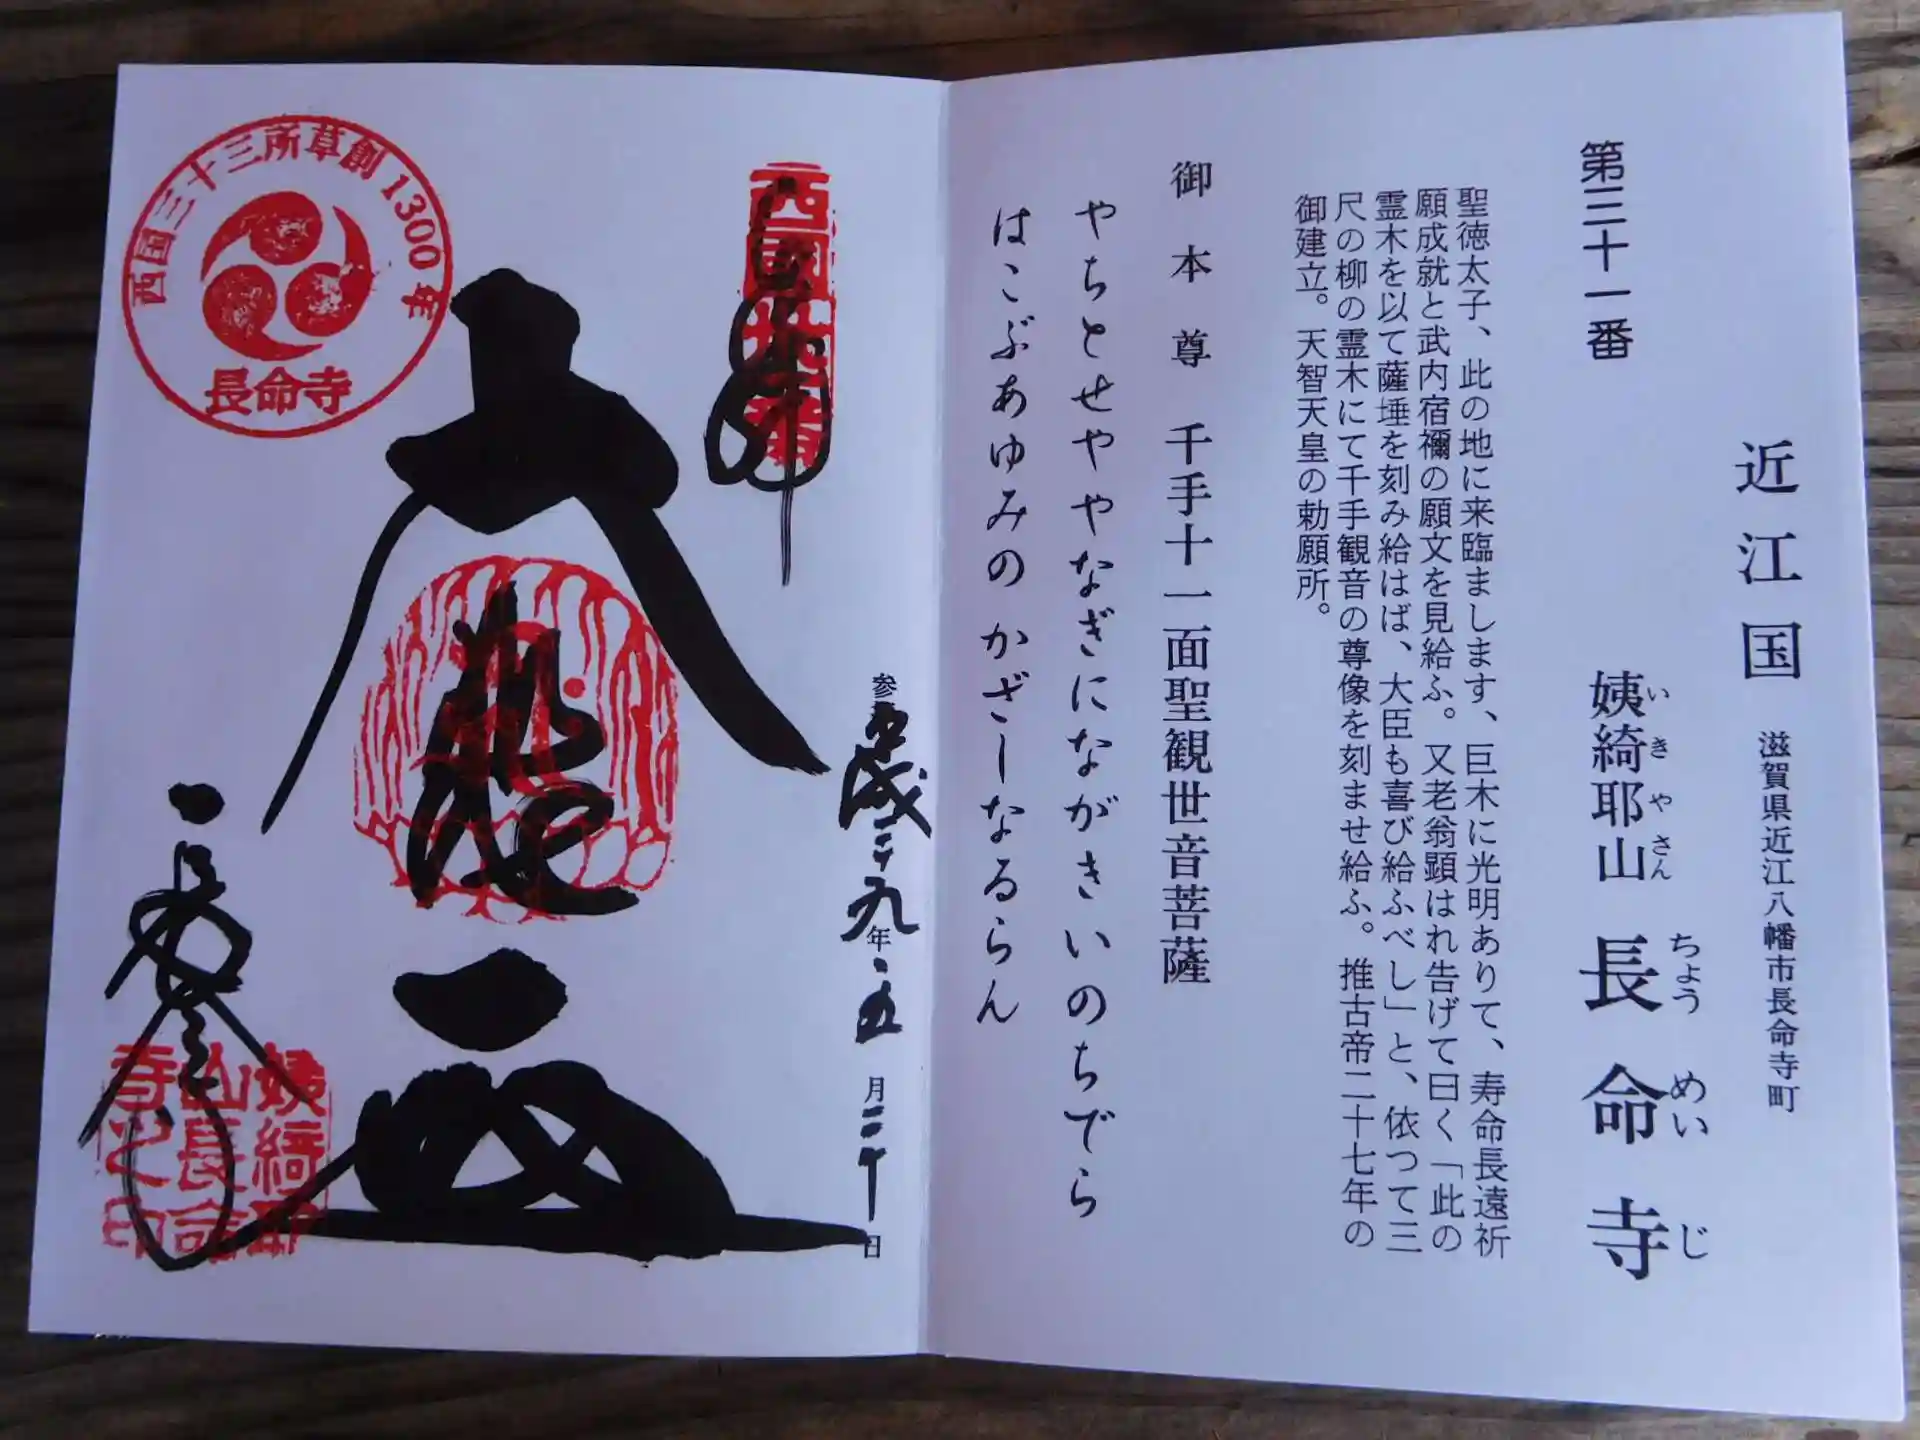 近江国 滋賀県近江八幡市長命寺町
第三十一番 姨綺耶山 長命寺
いきやさん ちょうめいじ
聖徳太子、此の地に来臨まします、巨木に光明ありて、寿命長遠祈
願成就と武内宿禰の願文を見給ふ。又老翁顕はれ告げて曰く「此の
霊木を以て薩埵を刻み給はば、大臣も喜び給ふべし」と、依つて三
尺の柳の霊木にて千手観音の尊像を刻ませ給ふ。推古帝二十七年の
御建立。天智天皇の勅願所。
御本尊 千手十一面聖観世音菩薩
やちとせややなぎにながきいのちでら
はこぶあゆみの かざしなるらん
平成二十九年五月二十日
奉拝
西國卅一番
大悲殿
長命寺
姨綺耶山長命寺之印
西国三十三所草創1300年
長命寺